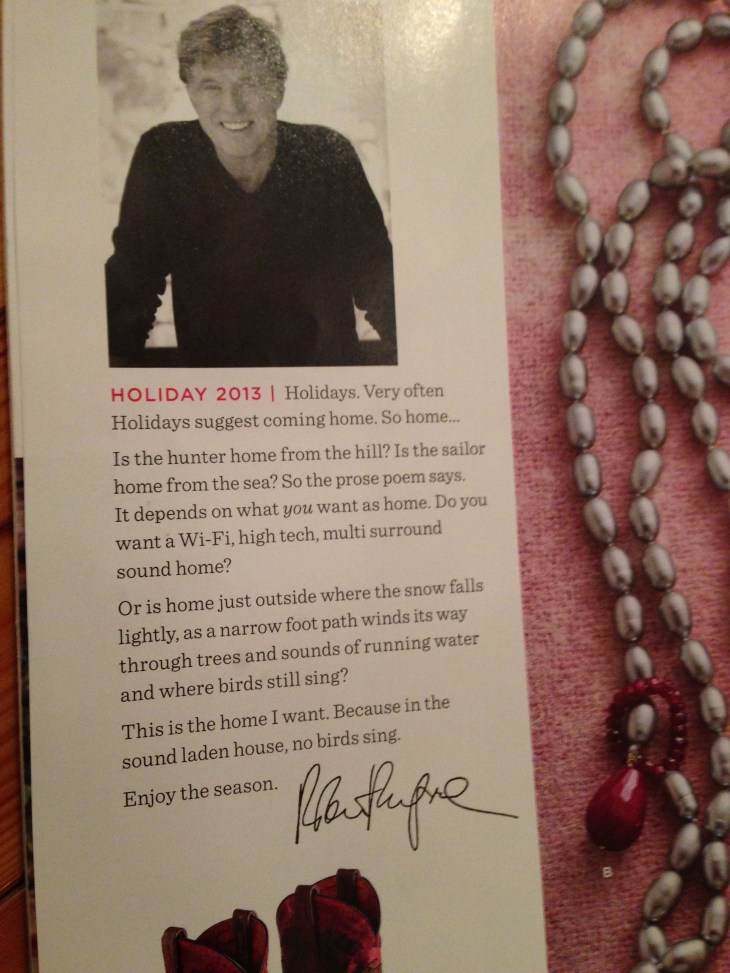 HOLIDAY 2013 | Holidays. Very often
Holidays suggest coming home. So home...
Is the hunter home from the hill? Is the sailor
home from the sea? So the prose poem says.
It depends on what you want as home. Do you
want a Wi-Fi, high tech, multi surround
sound home?
Or is home just outside where the snow falls
lightly, as a narrow foot path winds its way
through trees and sounds of running water
and where birds still sing?
This is the home I want. Because in the
sound laden house, no birds sing.
Enjoy the season.
B